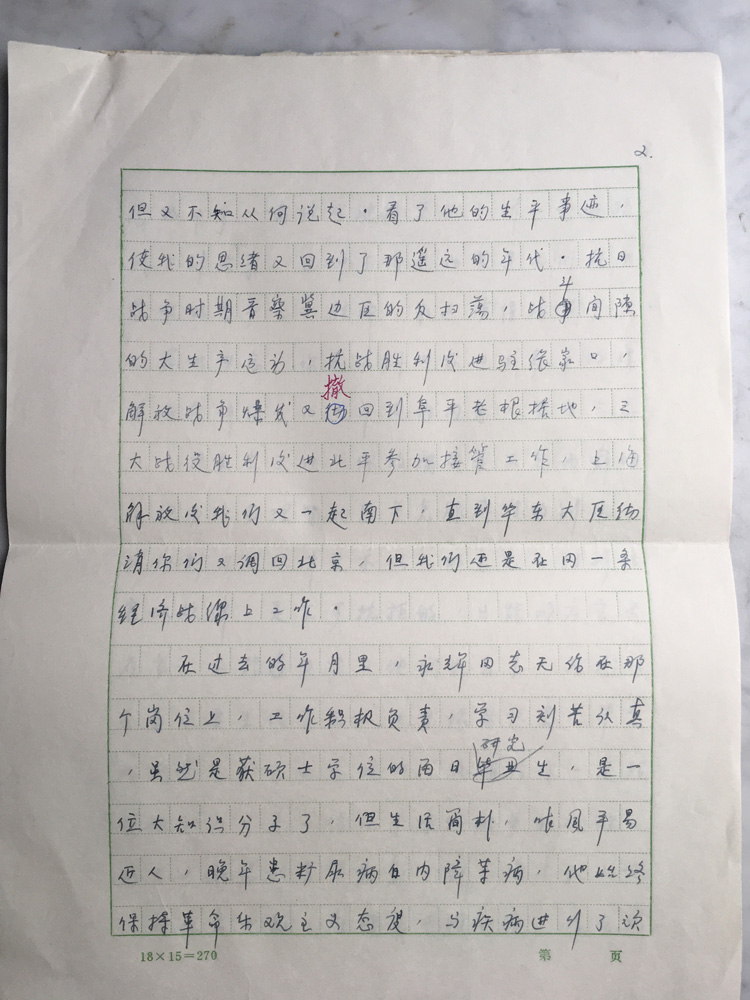 2.
但又不知从何说起．看了他的生平事迹，
使我的思绪又回到了那遥远的年代．抗日
战争时期晋察冀边区的反扫荡，战斗间隙
的大生产运动，抗战胜利后进驻张家口，
解放战争爆发又撤回到阜平老根据地，三
大战役胜利后进北平参加接管工作．上海
解放后我们又一起南下，直到华东大区
你们又调回北京，但我们还是在同一条
经济战线上工作．
在过去的年月里，永年同志无论在那
个岗位上，工作积极负责，学习刻苦认真
，虽然是获硕士学位的日研究生，是一
位大知识分子了，但生活简朴，作风平易
近人，晚年患糖尿病白内障等病，他始终
保持革命乐观主义态度，与疾病进行了顽
18×15=270
第 页